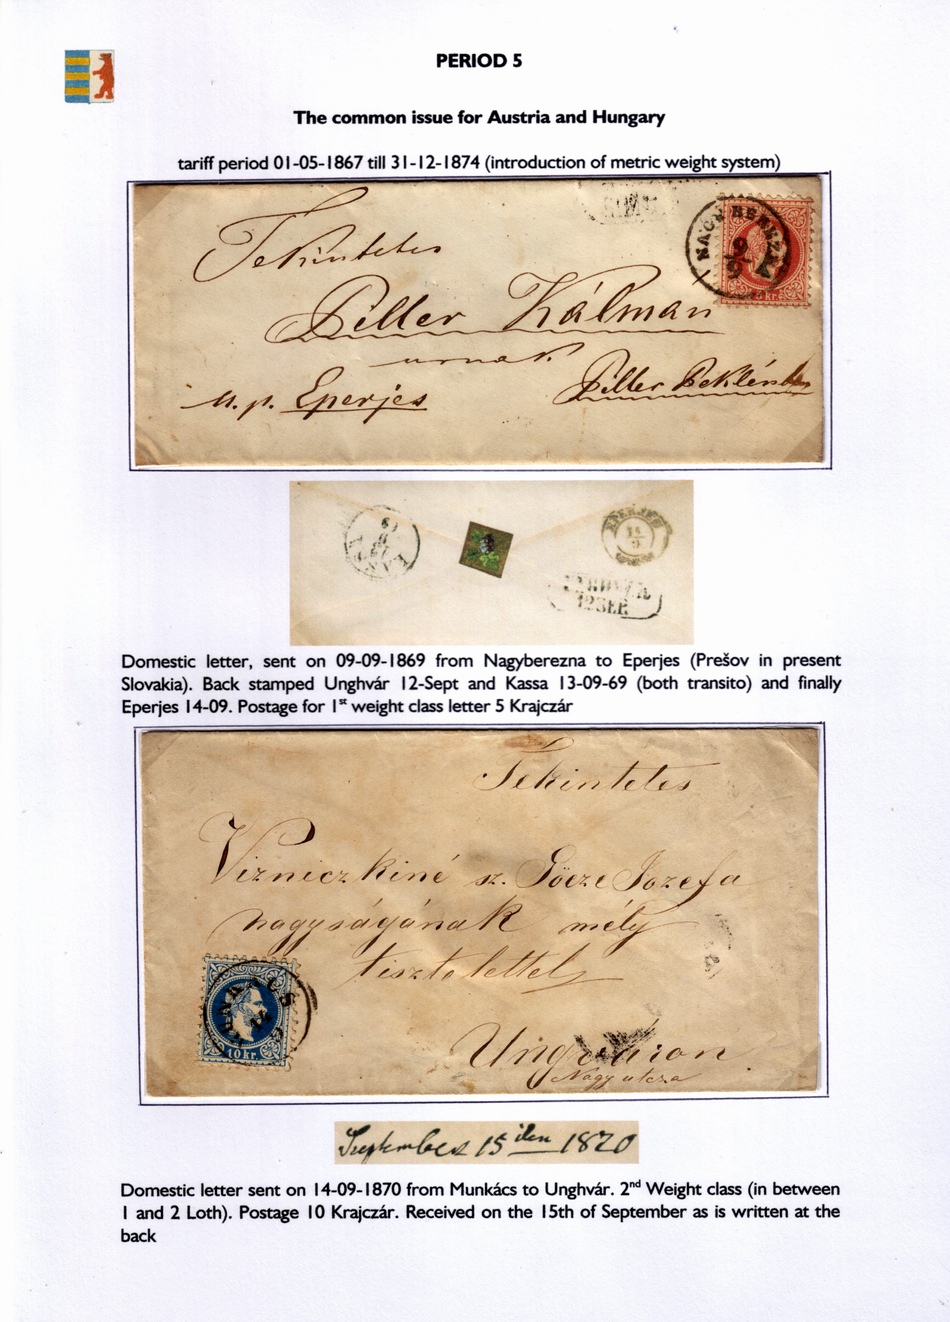 PERIOD 5
The common issue for Austria and Hungary
tariff period 01-05-1867 till 31-12-1874 (introduction of metric weight system)
NAGY BEREZNA
9
9
5 kr.
Tekintetes
Piller Kálmán
urnak
u.p. Eperjes
Piller
EPERJES
14
9
12 SEP.
Domestic letter, sent on 09-09-1869 from Nagyberezna to Eperjes (Prešov in present
Slovakia). Back stamped Unghvár 12-Sept and Kassa 13-09-69 (both transito) and finally
Eperjes 14-09. Postage for 1st weight class letter 5 Krajczár
Tekintetes
Vizniczkiné sz. Göcze Jozefa
nagyságának mély
tisztelettel
MUNKÁCS
14
9
10 kr.
Ungváron
Nagy utcza
September 15 iken 1870
Domestic letter sent on 14-09-1870 from Munkács to Unghvár. 2nd Weight class (in between
1 and 2 Loth). Postage 10 Krajczár. Received on the 15th of September as is written at the
back